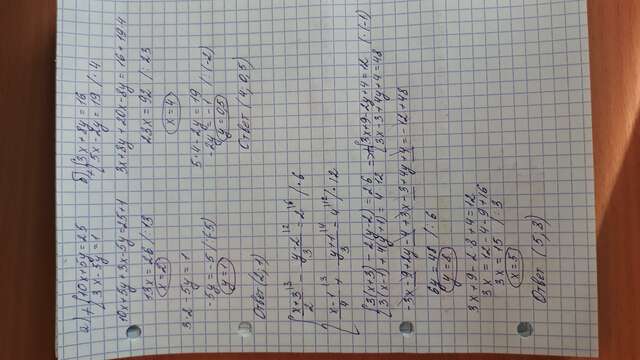 а) + { 10x+5y=25
{ 3x-5y=1
10x+5y+3x-5y=25+1
13x=26 /:13
x=2
3·2-5y=1
-5y=-5 /(-5)
y=1
Ответ (2; 1)
б) + { 3x+8y=16
{ 5x-2y=19 /·4
3x+8y+20x-8y=16+19·4
23x=92 /:23
x=4
5·4-2y=19 /(-2)
-2y=-1
y=0,5
Ответ (4, 0,5)
{ x+3/2 - y-2/3 = 2 /·6
{ x-1/4 + y+1/3 = 4 /·12
{ 3(x+3)-2(y-2)=26
{ 3(x-1)+4(y+1)=4·12
=> + { 3x+9-2y+4=12 /·(-1)
{ 3x-3+4y+4=48
-3x-9+2y-4+3x-3+4y+4=-12+48
6y=48 /:6
3x+9-2·3+4=12
3x=12-4-9+16
3x=15 /:3
x=5
Ответ (5, 3)